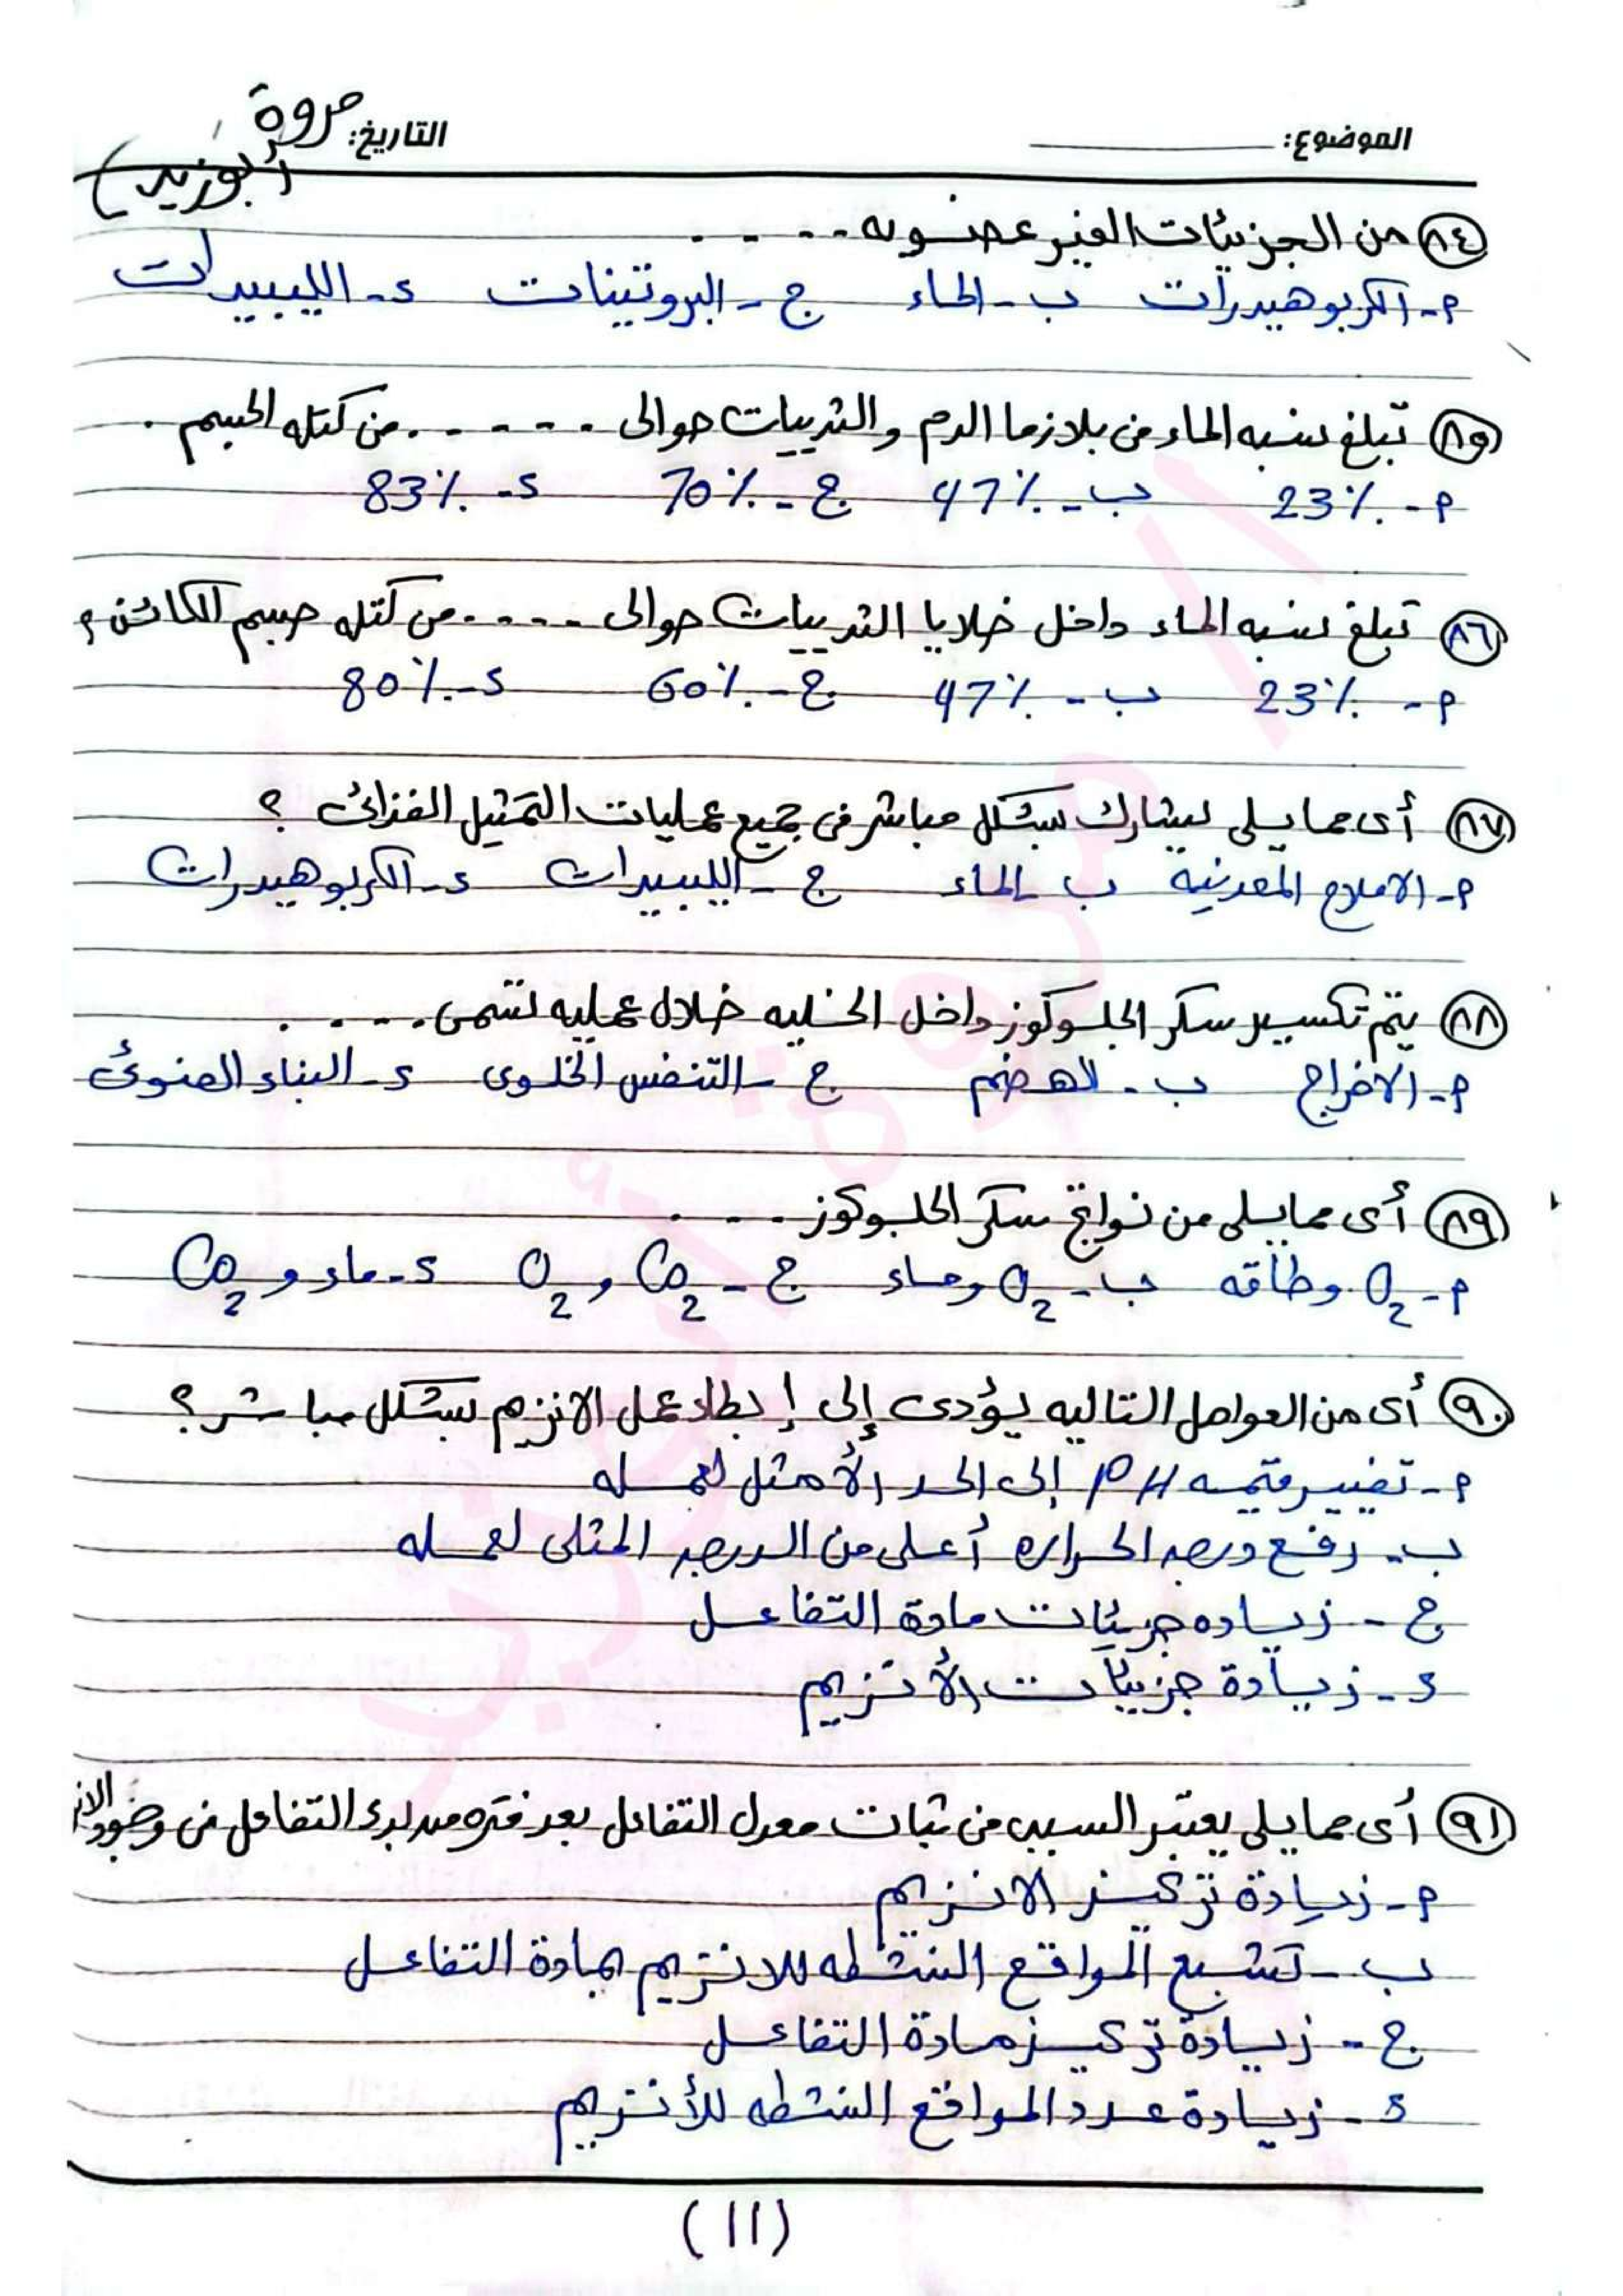 الموضوع:
التاريخ: مروة
أبوزيد
٨٤ من الجزيئات الغير عضويه ....
م- الكربوهيدرات ب- الماء ج- البروتينات د- الليبيدات
٨٥ تبلغ نسبه الماء فى بلازما الدم والثدييات حوالى ..... من كتله الجسم .
م- 23% ب- 47% ج- 70% د- 83%
٨٦ تبلغ نسبه الماء داخل خلايا الثدييات حوالى .... من كتله جسم الكائن ؟
م- 23% ب- 47% ج- 60% د- 80%
٨٧ أى مما يلى يشارك بشكل مباشر فى جميع عمليات التمثيل الغذائى ؟
م- الاملاح المعدنيه ب الماء ج- الليبيدات د- الكربوهيدرات
٨٨ يتم تكسير سكر الجلوكوز داخل الخليه خلال عمليه تسمى ....
م- الاخراج ب- الهضم ج- التنفس الخلوى د- البناء الضوئى
٨٩ أى مما يلى من نواتج سكر الجلوكوز ....
م- O2 وطاقه ب- O2 وماء ج- CO2 و O2 د- ماء و CO2
٩٠ أى من العوامل التاليه يؤدى إلى إبطاء عمل الانزيم بشكل مباشر ؟
م- تغيير قيمه PH إلى الحد الأمثل لعمله
ب- رفع درجه الحراره أعلى من الدرجه المثلى لعمله
ج- زياده جزيئات مادة التفاعل
د- زيادة جزيئات الأنزيم
٩١ أى مما يلى يعتبر السبب فى ثبات معدل التفاعل بعد فتره من بدء التفاعل فى وجود الانز
م- زيادة تركيز الانزيم
ب- تشبع المواقع النشطه للانزيم بمادة التفاعل
ج- زيادة تركيز مادة التفاعل
د- زيادة عدد المواقع النشطه للأنزيم
(11)